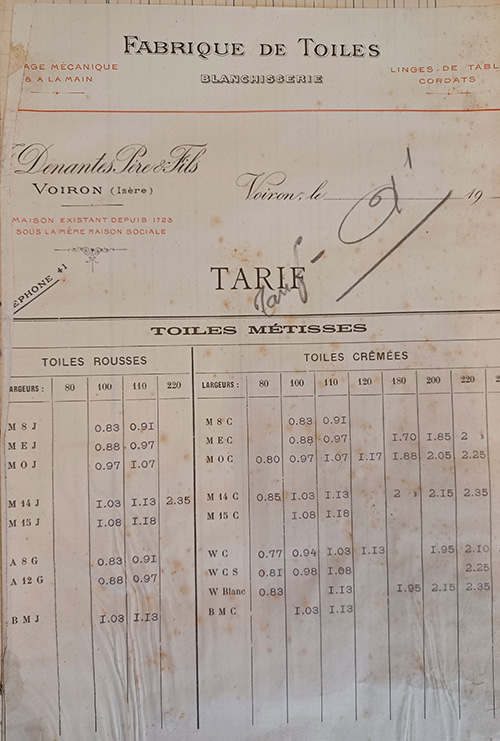 FABRIQUE DE TOILES
BLANCHISSERIE
AGE MÉCANIQUE
& A LA MAIN
LINGES DE TABL
CORDATS
Denantes Père & Fils
VOIRON (Isère)
Voiron, le 19
MAISON EXISTANT DEPUIS 1723
SOUS LA MÊME RAISON SOCIALE
ÉPHONE 41
TARIF
Tarif
TOILES MÉTISSES
TOILES ROUSSES
ARGEURS : 80 100 110 220
M 8 J 0.83 0.91
M E J 0.88 0.97
M O J 0.97 1.07
M 14 J 1.03 1.13 2.35
M 15 J 1.08 1.18
A 8 G 0.83 0.91
A 12 G 0.88 0.97
B M J 1.03 1.13
TOILES CRÉMÉES
LARGEURS : 80 100 110 120 180 200 220 2
M 8 C 0.83 0.91
M E C 0.88 0.97 1.70 1.85 2 »
M O C 0.80 0.97 1.07 1.17 1.88 2.05 2.25
M 14 C 0.85 1.03 1.13 2 » 2.15 2.35
M 15 C 1.08 1.18
W C 0.77 0.94 1.03 1.13 1.95 2.10
W C S 0.81 0.98 1.08 2.25
W Blanc 0.83 1.13 1.95 2.15 2.35
B M C 1.03 1.13